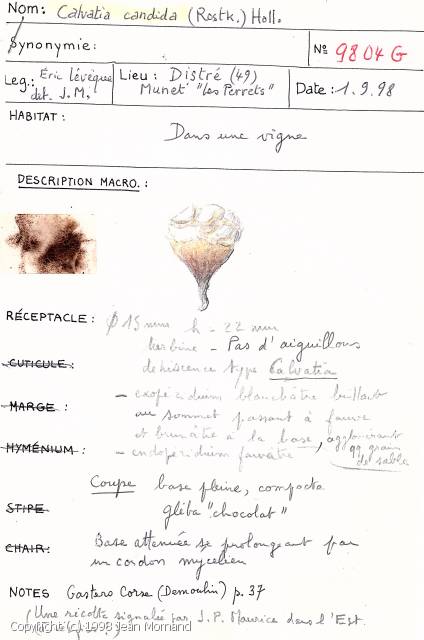 Nom: Calvatia candida (Rostk.) Holl.
Synonymie:
No 9804G
Leg: Eric Lévêque
det. J.M.
Lieu: Distré (49)
Munet "les Perrets"
Date: 1.9.98
HABITAT:
Dans une vigne
DESCRIPTION MACRO.:
RÉCEPTACLE: φ 15 mm h - 22 mm
- Pas d'aiguillons
CUTICULE: dehiscence type Calvatia
MARGE: - exopéridium blanchâtre brillant
au sommet passant à fauve
et brunâtre à la base, agglomérant
qq grains
de sable
HYMÉNIUM: - endoperidium fauvatre
Coupe base pleine, compacte
STIPE
gleba "chocolat"
CHAIR: Base attenuée se prolongeant par
un cordon mycelien
NOTES Gastero Corse (Demoulin) p. 37
(Une récolte signalée par J.P. Maurice dans l'Est
Copyright (c) 1998 Jean Mornand